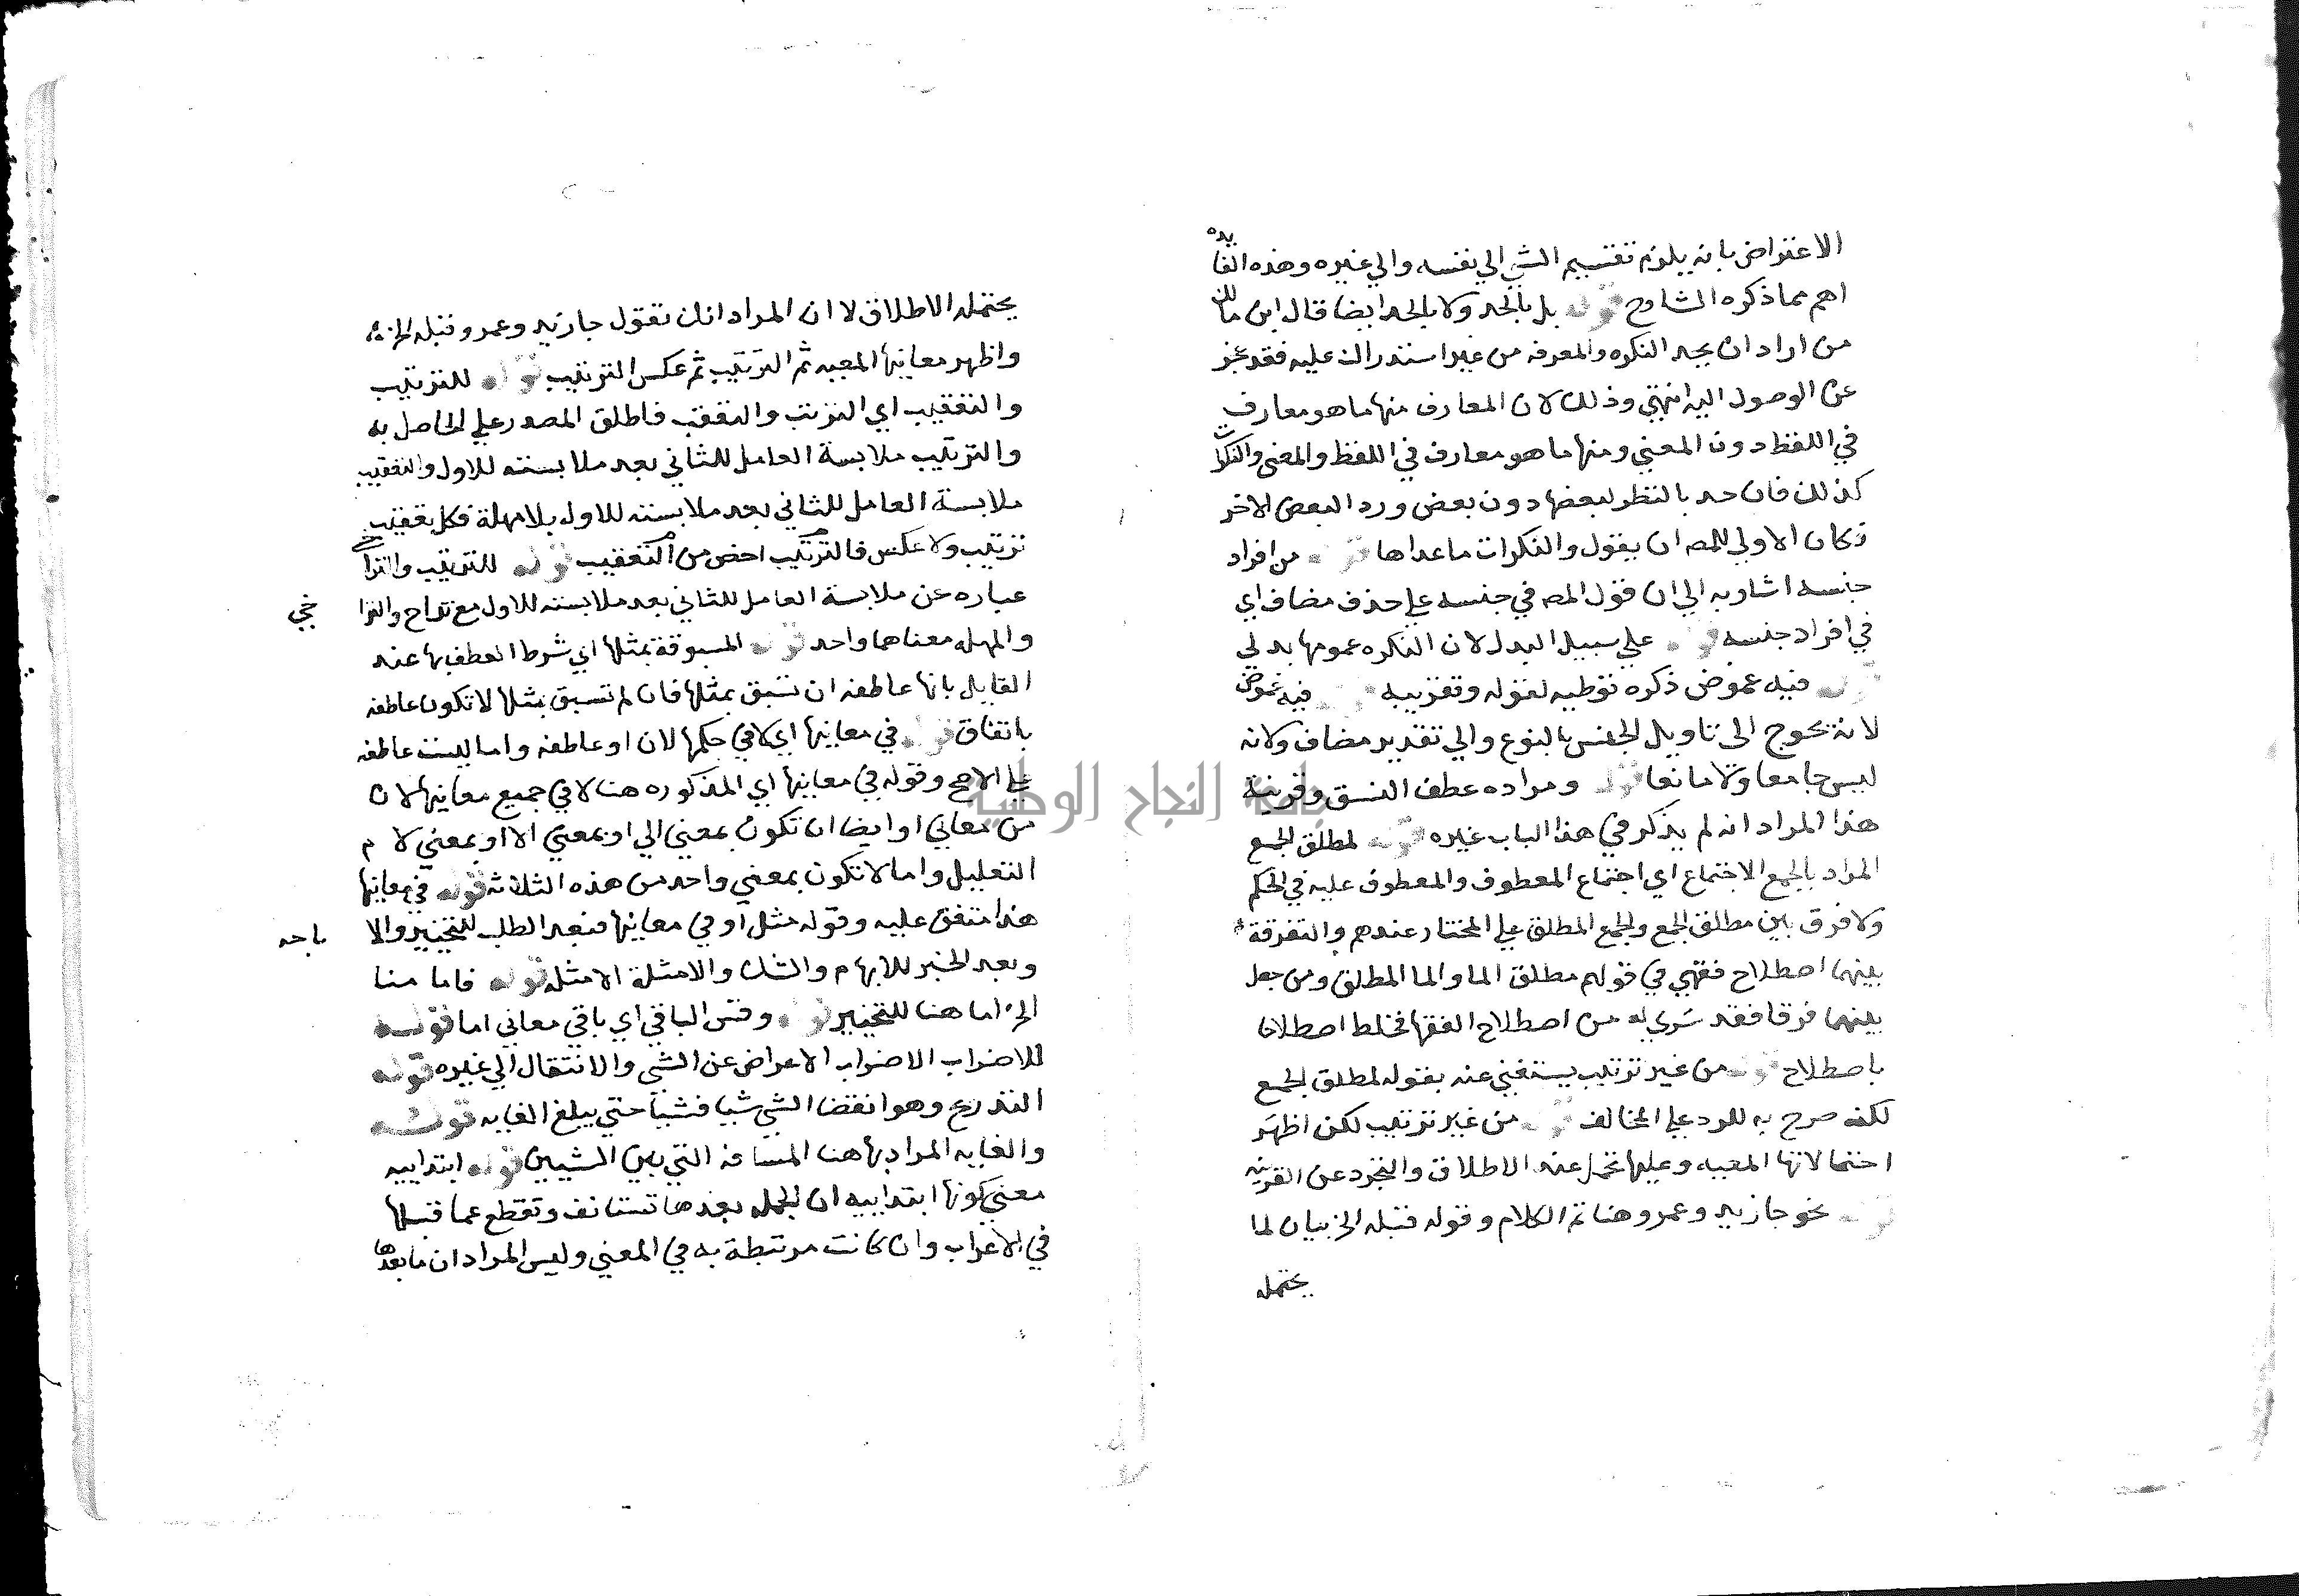 الاعتراض بانه يلزم تقسيم الشي الي نفسه والي غيره وهذه الفايده
اهم مما ذكره الشارح قوله بل بالحد ولا بالحد ايضا قال ابن مالك
من اراد ان يحد النكره والمعرفه من غير استدراك عليه فقد عجز
عن الوصول اليه انتهي وذلك لان المعارف منها ما هو معارف
في اللفظ دون المعني ومنها ما هو معارف في اللفظ والمعني والنكرات
كذلك فان حد بالنظر لبعضها دون بعض ورد البعض الاخر
فكان الاولي للمص ان يقول والنكرات ما عداها قوله من افراد
جنسه اشار به الي ان قول المص في جنسه علي حذف مضاف اي
في افراد جنسه قوله علي سبيل البدل لان النكره عمومها بدلي
قوله فيه غموض ذكره توطيه لقوله وتقريبه قوله فيه غموض
لانه يحوج الي تاويل الجنس بالنوع والي تقدير مضاف ولانه
ليس جامعا ولا مانعا قوله ومراده عطف النسق وقرينة
هذا المراد انه لم يذكر في هذا الباب غيره قوله لمطلق الجمع
المراد بالجمع الاجتماع اي اجتماع المعطوف والمعطوف عليه في الحكم
ولا فرق بين مطلق الجمع والجمع المطلق علي المختار عندهم والتفرقة
بينهما اصطلاح فقهي في قولهم مطلق الما والما المطلق ومن جعل
بينهما فرقا فقد سَري له من اصطلاح الفقها فخلط اصطلاحا
باصطلاح قوله من غير ترتيب يستغني عنه بقوله لمطلق الجمع
لكنه صرح به للرد علي المخالف قوله من غير ترتيب لكن اظهَر
احتمالاتها المعيه وعليها تحمل عند الاطلاق والتجرد عن القرينه
قوله نحو جا زيد وعمرو هنا تم الكلام وقوله قبله الخ بيان لما
يحتمله
يحتمله الاطلاق لا ان المراد انك تقول جا زيد وعمرو قبله الخ
واظهر معانيها المعيه ثم الترتيب ثم عكس الترتيب قوله للترتيب
والتعقيب اي الترتب والتعقب فاطلق المصدر علي الحاصل به
والترتيب ملابسة العامل للثاني بعد ملابسته للاول والتعقيب
ملابسة العامل للثاني بعد ملابسته للاول بلا مهلة فكل تعقيب
ترتيب ولا عكس فالترتيب اخص من التعقيب قوله للترتيب والتراخي
عباره عن ملابسة العامل للثاني بعد ملابسته للاول مع تراخ والترا خي
والمهله معناهما واحد قوله المسبوقة بمثلها اي شرط العطف بها عند
القايل بانها عاطفه ان تسبق بمثلها فان لم تسبق بمثلها لا تكون عاطفه
باتفاق قوله في معانيها اي لا في حكمها لان او عاطفه واما ليست عاطفه
علي الاصح وقوله في معانيها اي المذكوره هنا لا في جميع معانيها لان
من معاني او ايضا ان تكون بمعني الي او بمعني الا او بمعني لا م
التعليل واما لا تكون بمعني واحد من هذه الثلاثة قوله في معانيها
هذا متفق عليه وقوله مثل او في معانيها فبعد الطلب للتخيير والا باحه
وبعد الخبر للابهام والشك والامثلة الامثله قوله فاما منا
الخ اما هنا للتخيير قوله وقس الباقي اي باقي معاني اما قوله
للاضراب الاضراب الاعراض عن الشي والانتقال الي غيره قوله
التدريج وهو انقضا الشي شيا فشيا حتي يبلغ الغايه قوله
والغايه المراد بها هنا المسافه التي بين الشيين قوله ابتداييه
معني كونها ابتداييه ان الجمله بعدها تستانف وتقطع عما قبلها
في الاعراب وان كانت مرتبطة به في المعني وليس المراد ان ما بعدها
جامعة النجاح الوطنية